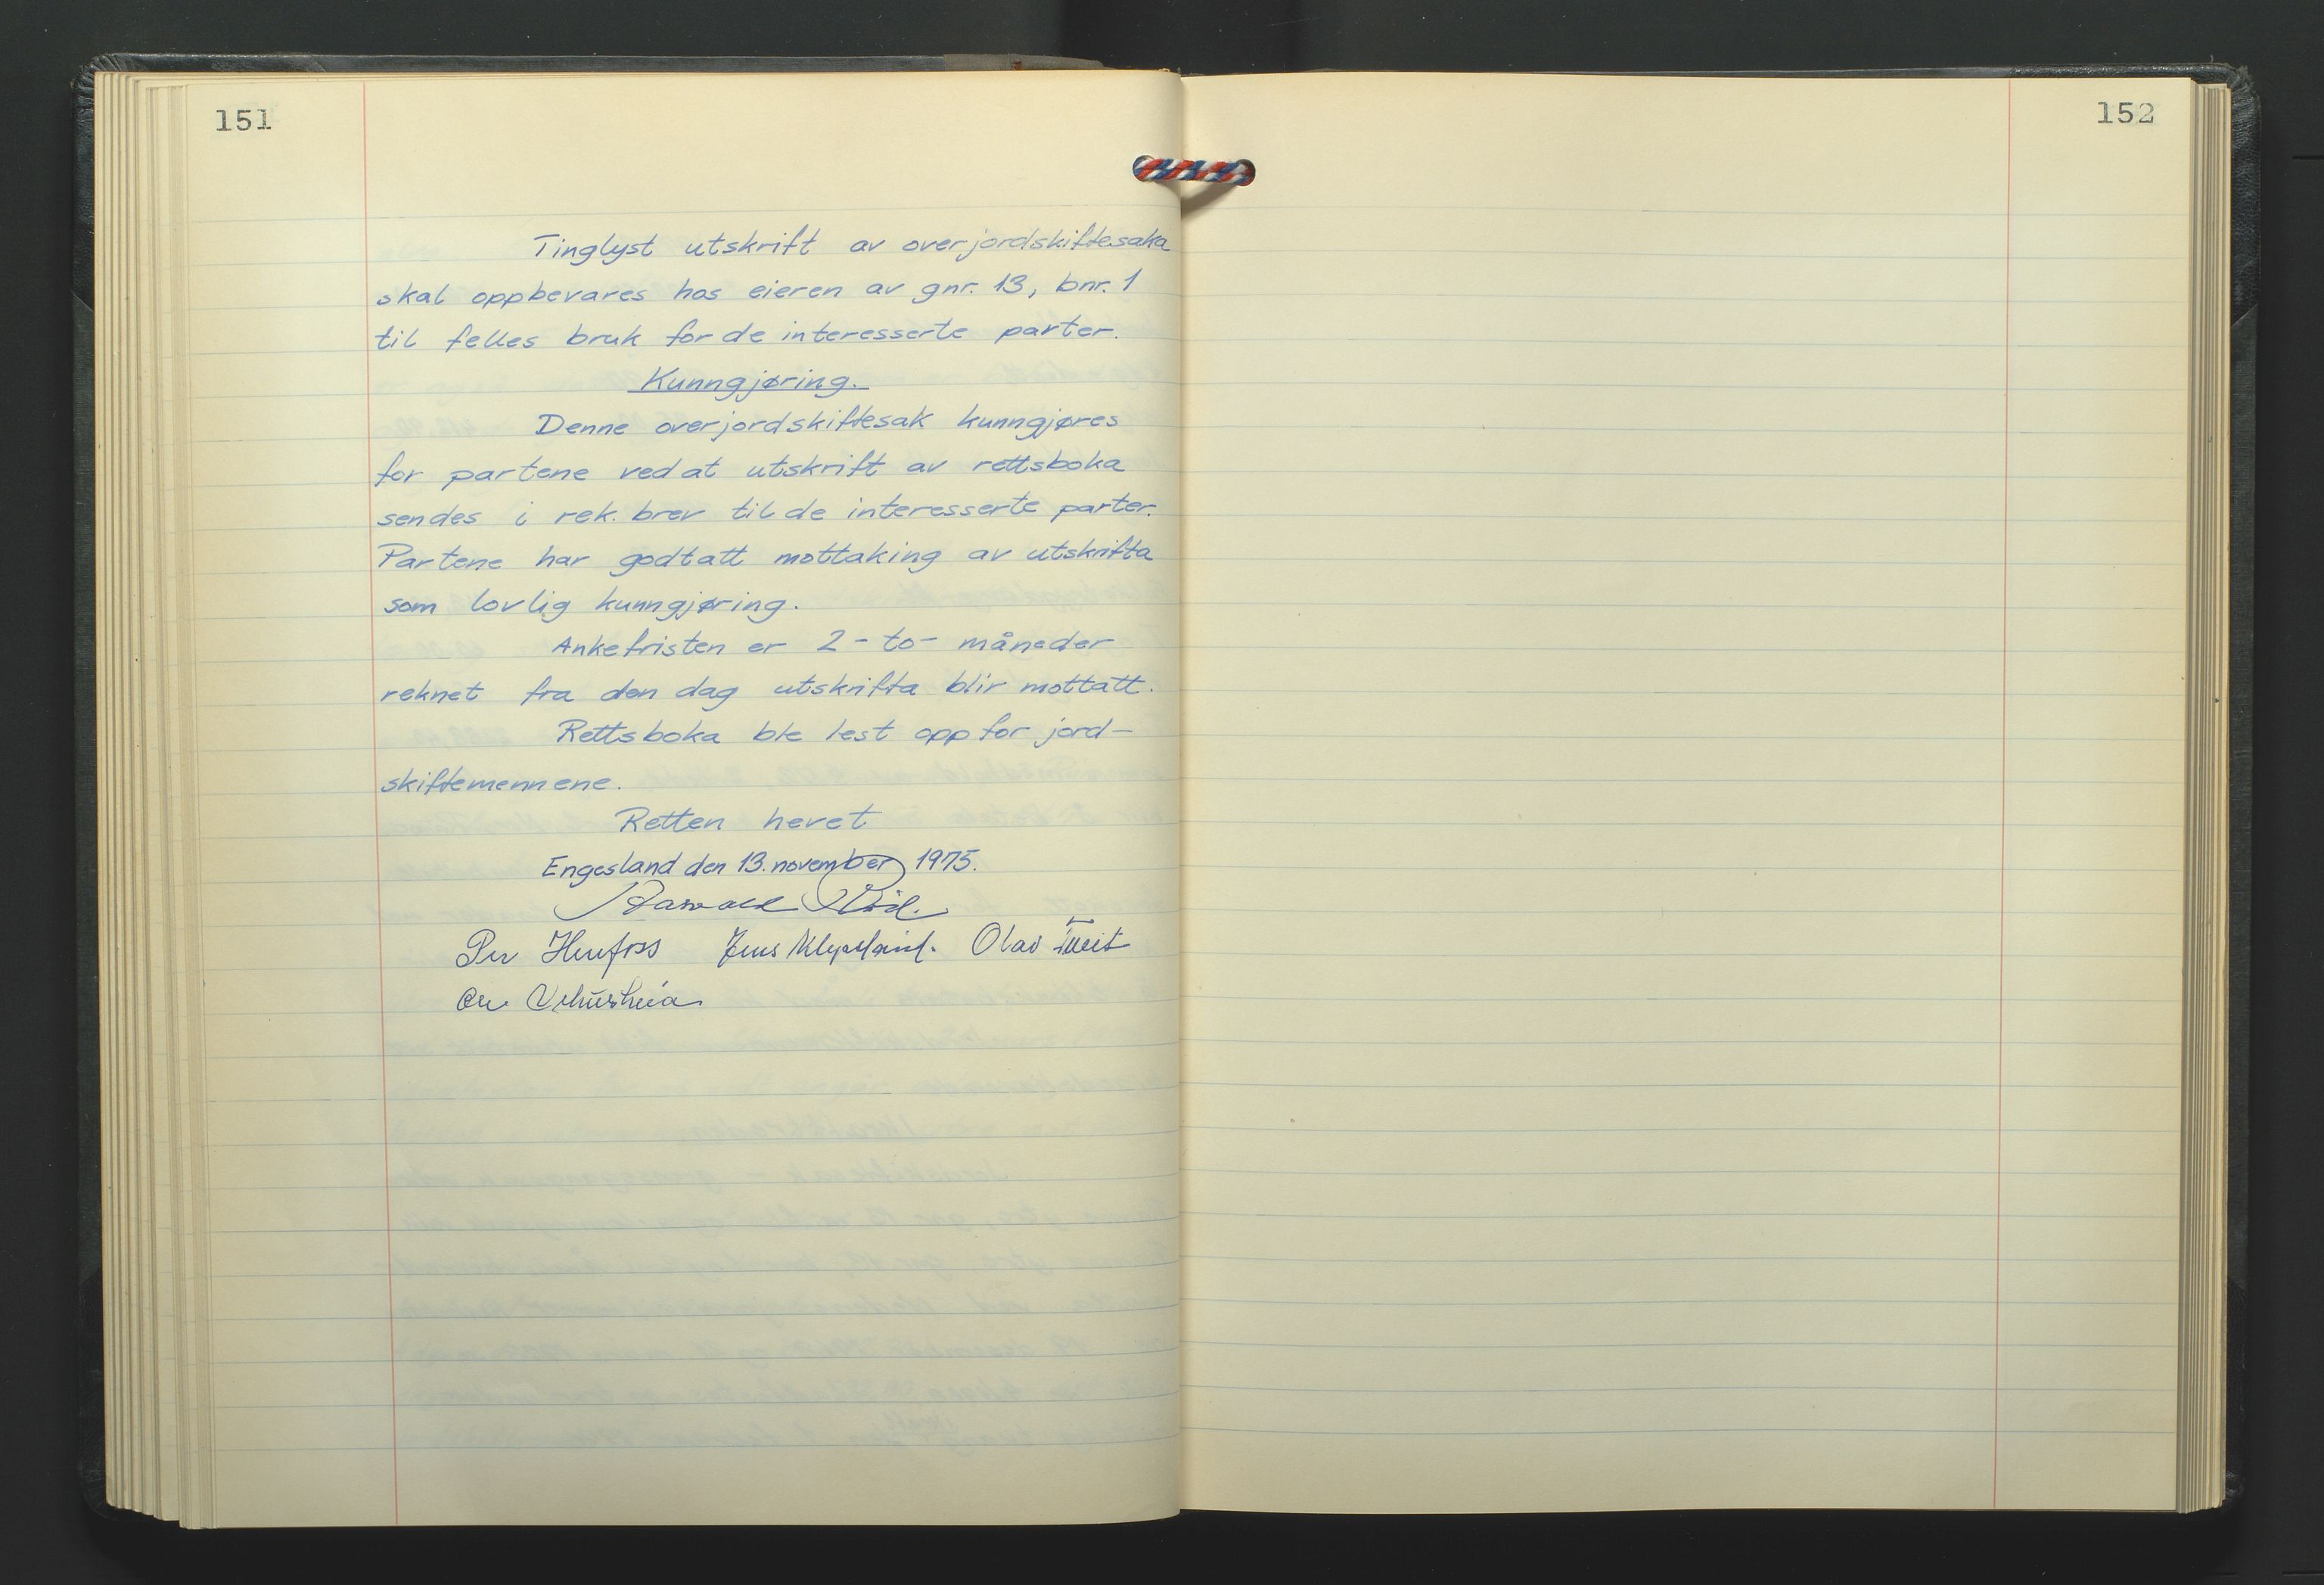 151
Tinglyst utskrift av overjordskiftesaka
skal oppbevares hos eieren av gnr. 13, bnr. 1
til felles bruk for de interesserte parter.
Kunngjøring.
Denne overjordskiftesak kunngjøres
for partene ved at utskrift av rettsboka
sendes i rek. brev til de interesserte parter.
Partene har godtatt mottaking av utskrifta
som lovlig kunngjøring.
Ankefristen er 2 - to - måneder
reknet fra den dag utskrifta blir mottatt.
Rettsboka ble lest opp for jord-
skiftemennene.
Retten hevet
Engesland den 13. november 1975.
Per Herefoss Jens Klepsland. Olav Tveit
152